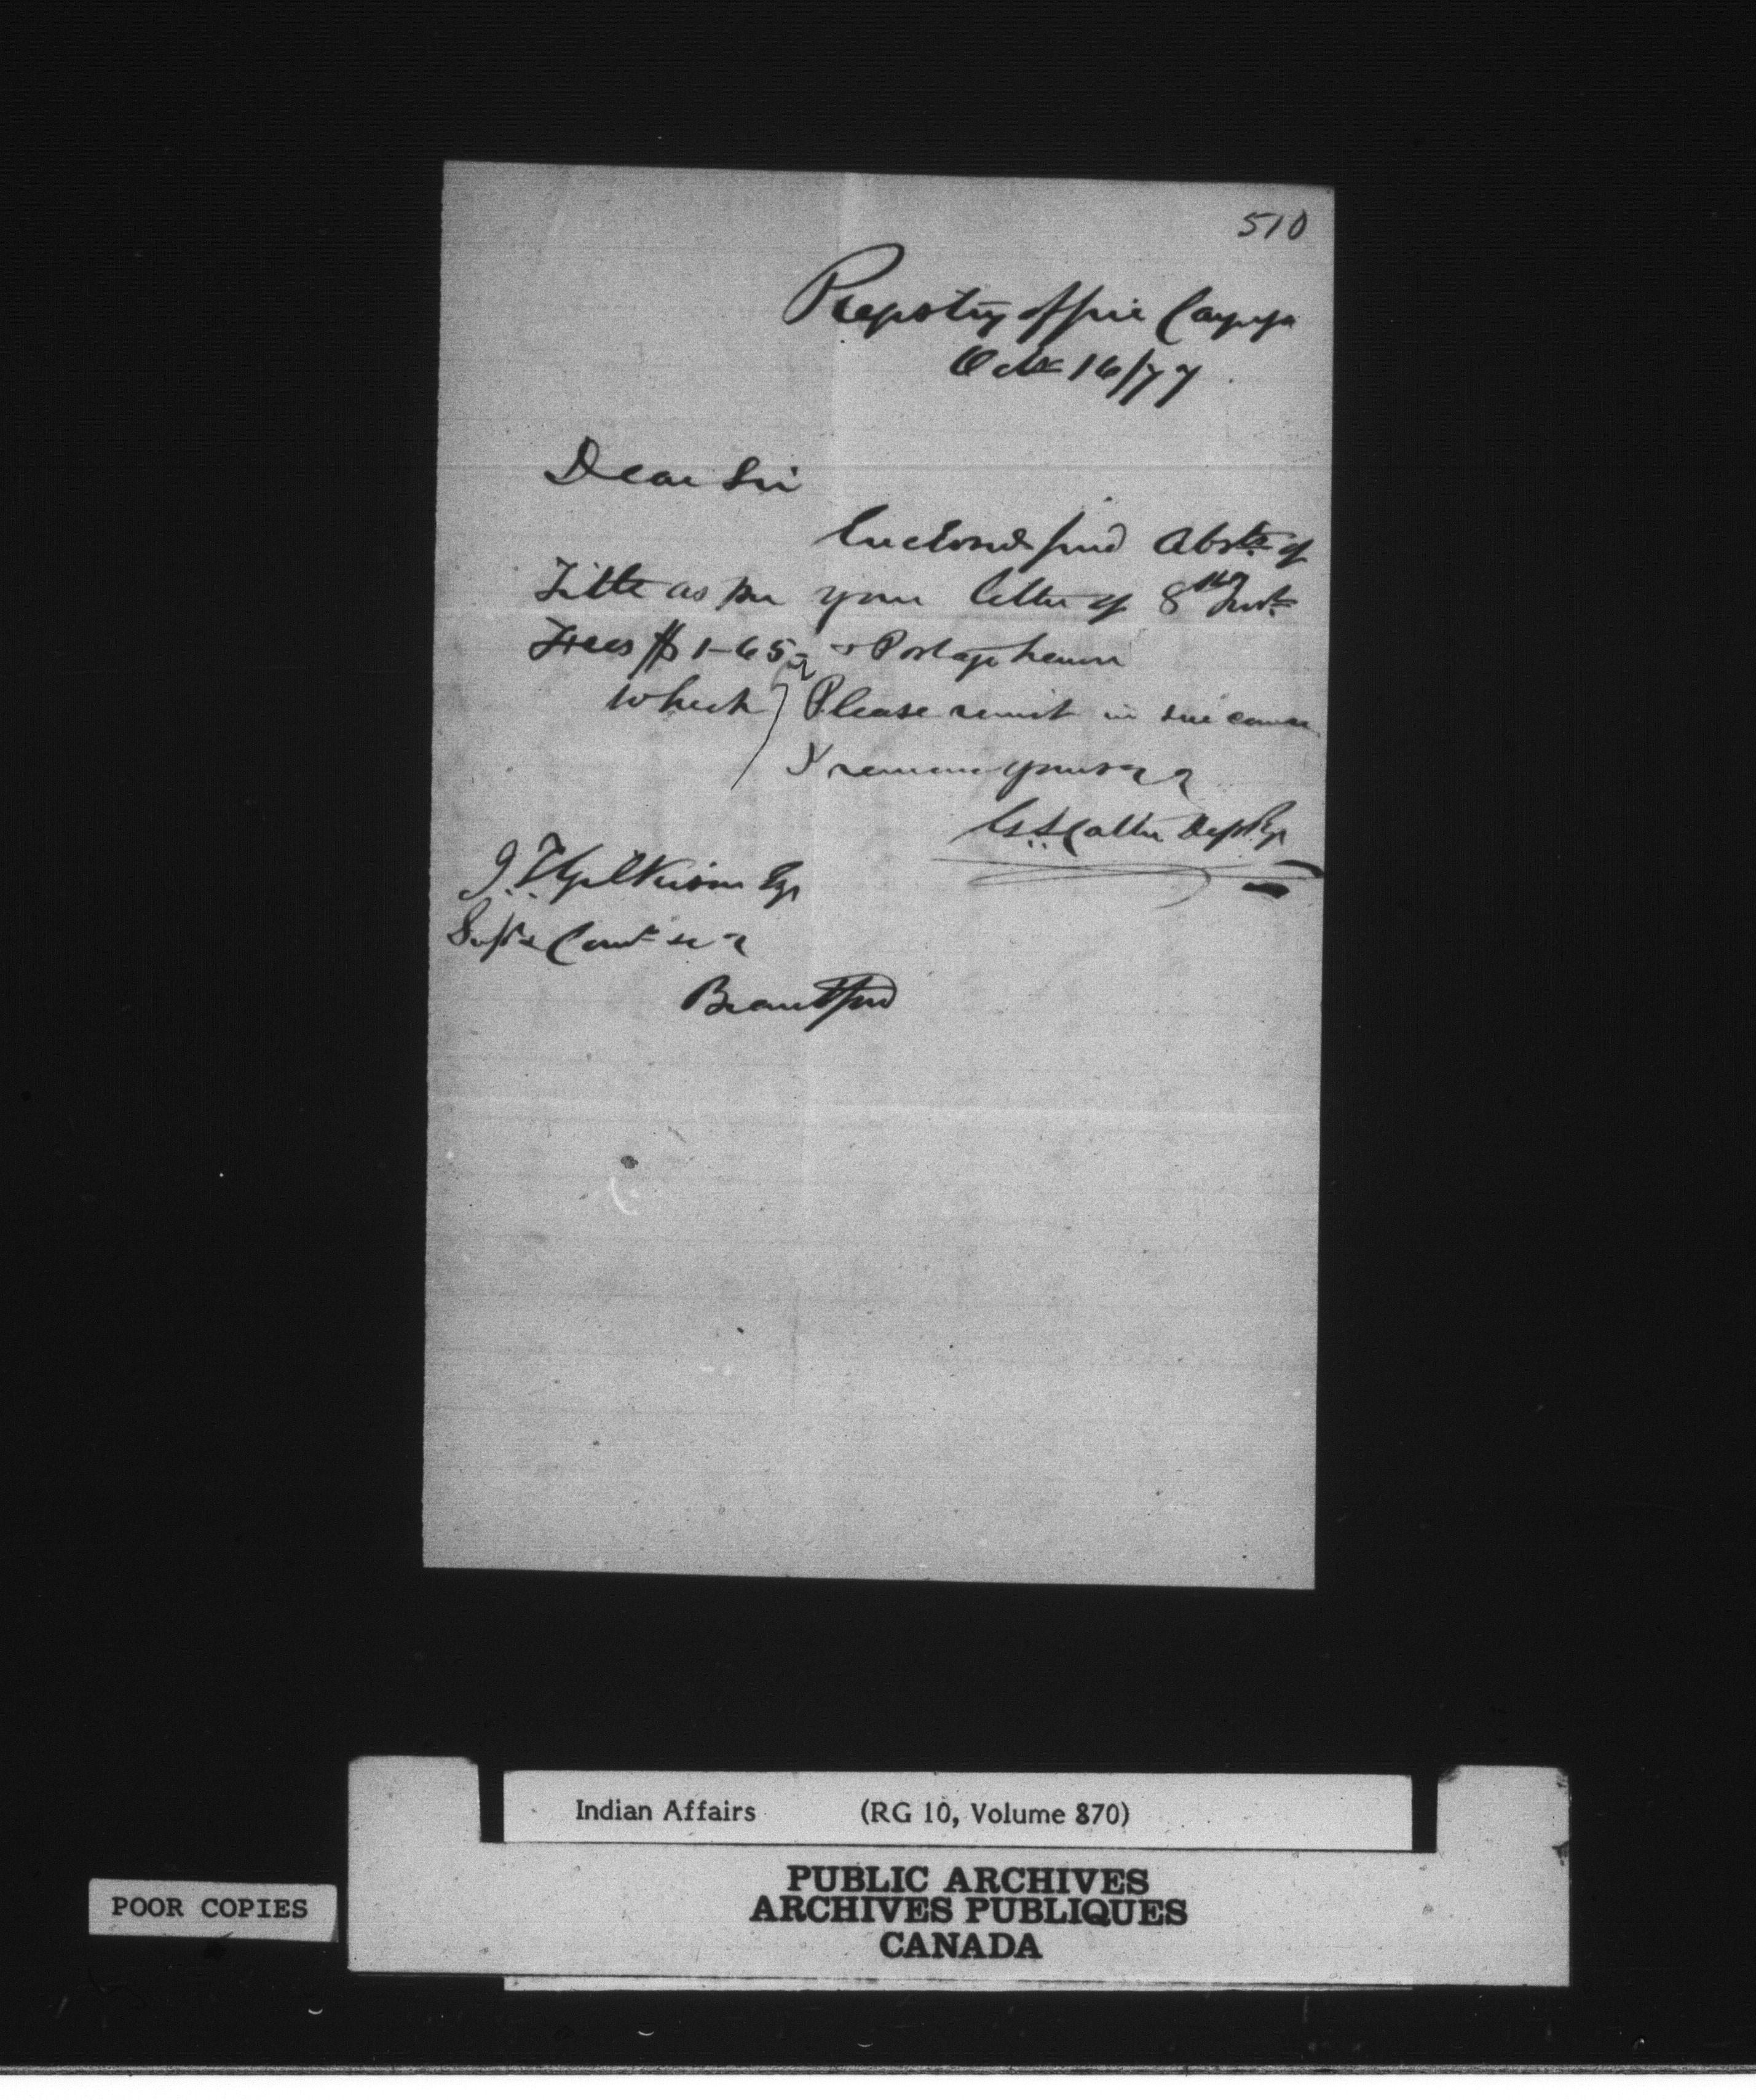 510
Registry office Cayuga
Oct 16/77
Dear Sir
Enclosed find Abst. of
Title as per your letter of 8th Inst.
Fees $1-65 & Postage hereon
which Please remit in due course
I remain yours
Dep Reg
J. T. Gilkison Esq
Supt & Comr
Brantford
Indian Affairs (RG 10, Volume 870)
PUBLIC ARCHIVES
ARCHIVES PUBLIQUES
CANADA
POOR COPIES